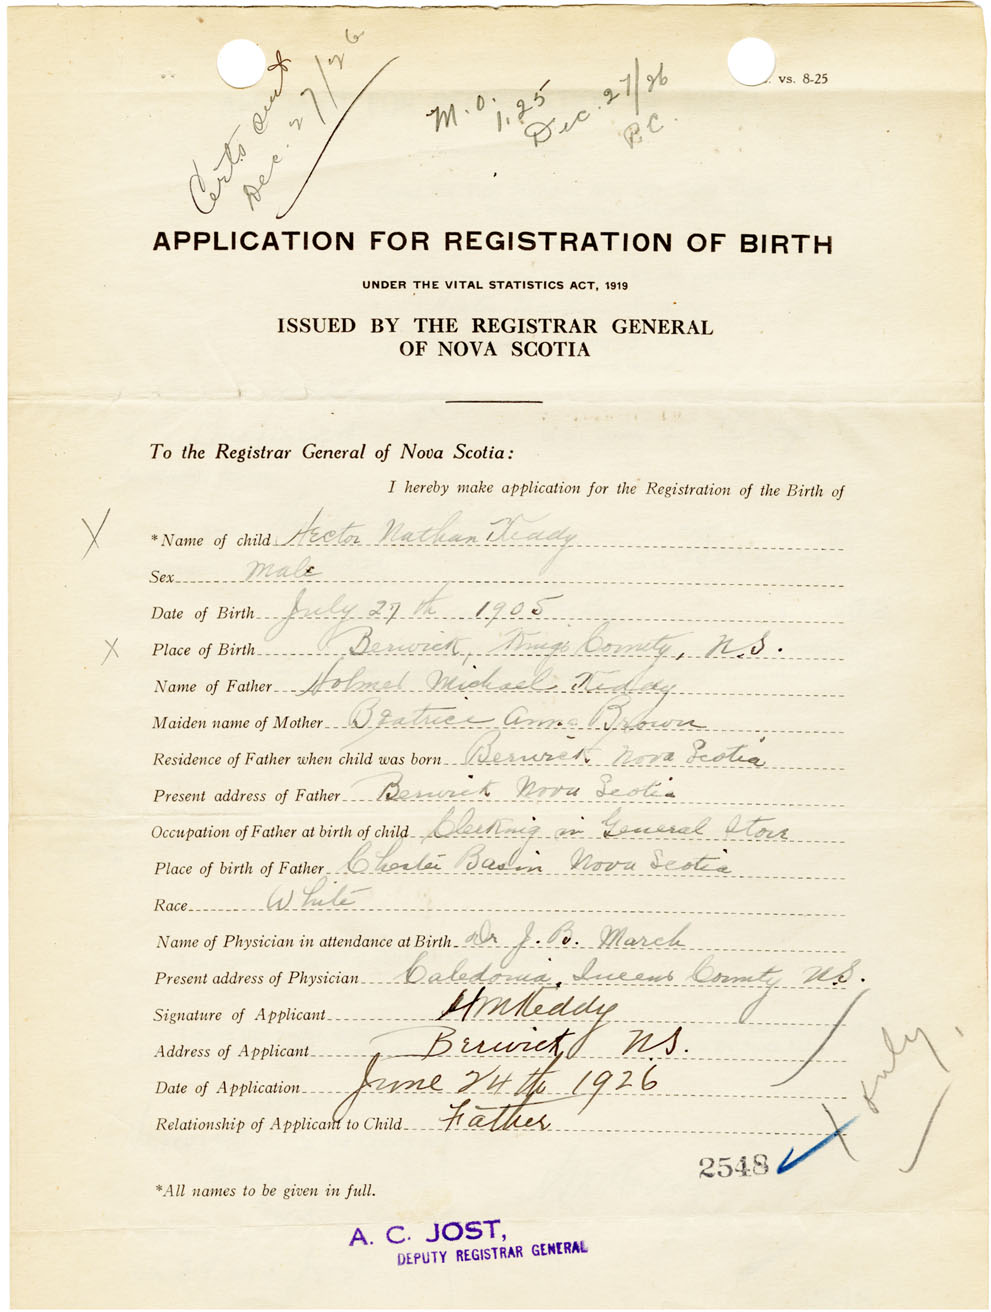 Certs sent
Dec. 27/26
M.O. 1.25
Dec. 27/26
P.C.
vs. 8-25
APPLICATION FOR REGISTRATION OF BIRTH
UNDER THE VITAL STATISTICS ACT, 1919
ISSUED BY THE REGISTRAR GENERAL
OF NOVA SCOTIA
To the Registrar General of Nova Scotia:
I hereby make application for the Registration of the Birth of
X *Name of child Hector Nathan Keddy
Sex Male
Date of Birth July 27th 1905
X Place of Birth Berwick, Kings County, N.S.
Name of Father Holmes Michael Keddy
Maiden name of Mother Beatrice Anne Brown
Residence of Father when child was born Berwick Nova Scotia
Present address of Father Berwick Nova Scotia
Occupation of Father at birth of child Clerking in General Store
Place of birth of Father Chester Basin Nova Scotia
Race White
Name of Physician in attendance at Birth Dr J. B. March
Present address of Physician Caledonia, Queens County N.S.
Signature of Applicant H M Keddy
Address of Applicant Berwick N.S.
Date of Application June 24th 1926
Relationship of Applicant to Child Father
2548
*All names to be given in full.
A. C. JOST,
DEPUTY REGISTRAR GENERAL